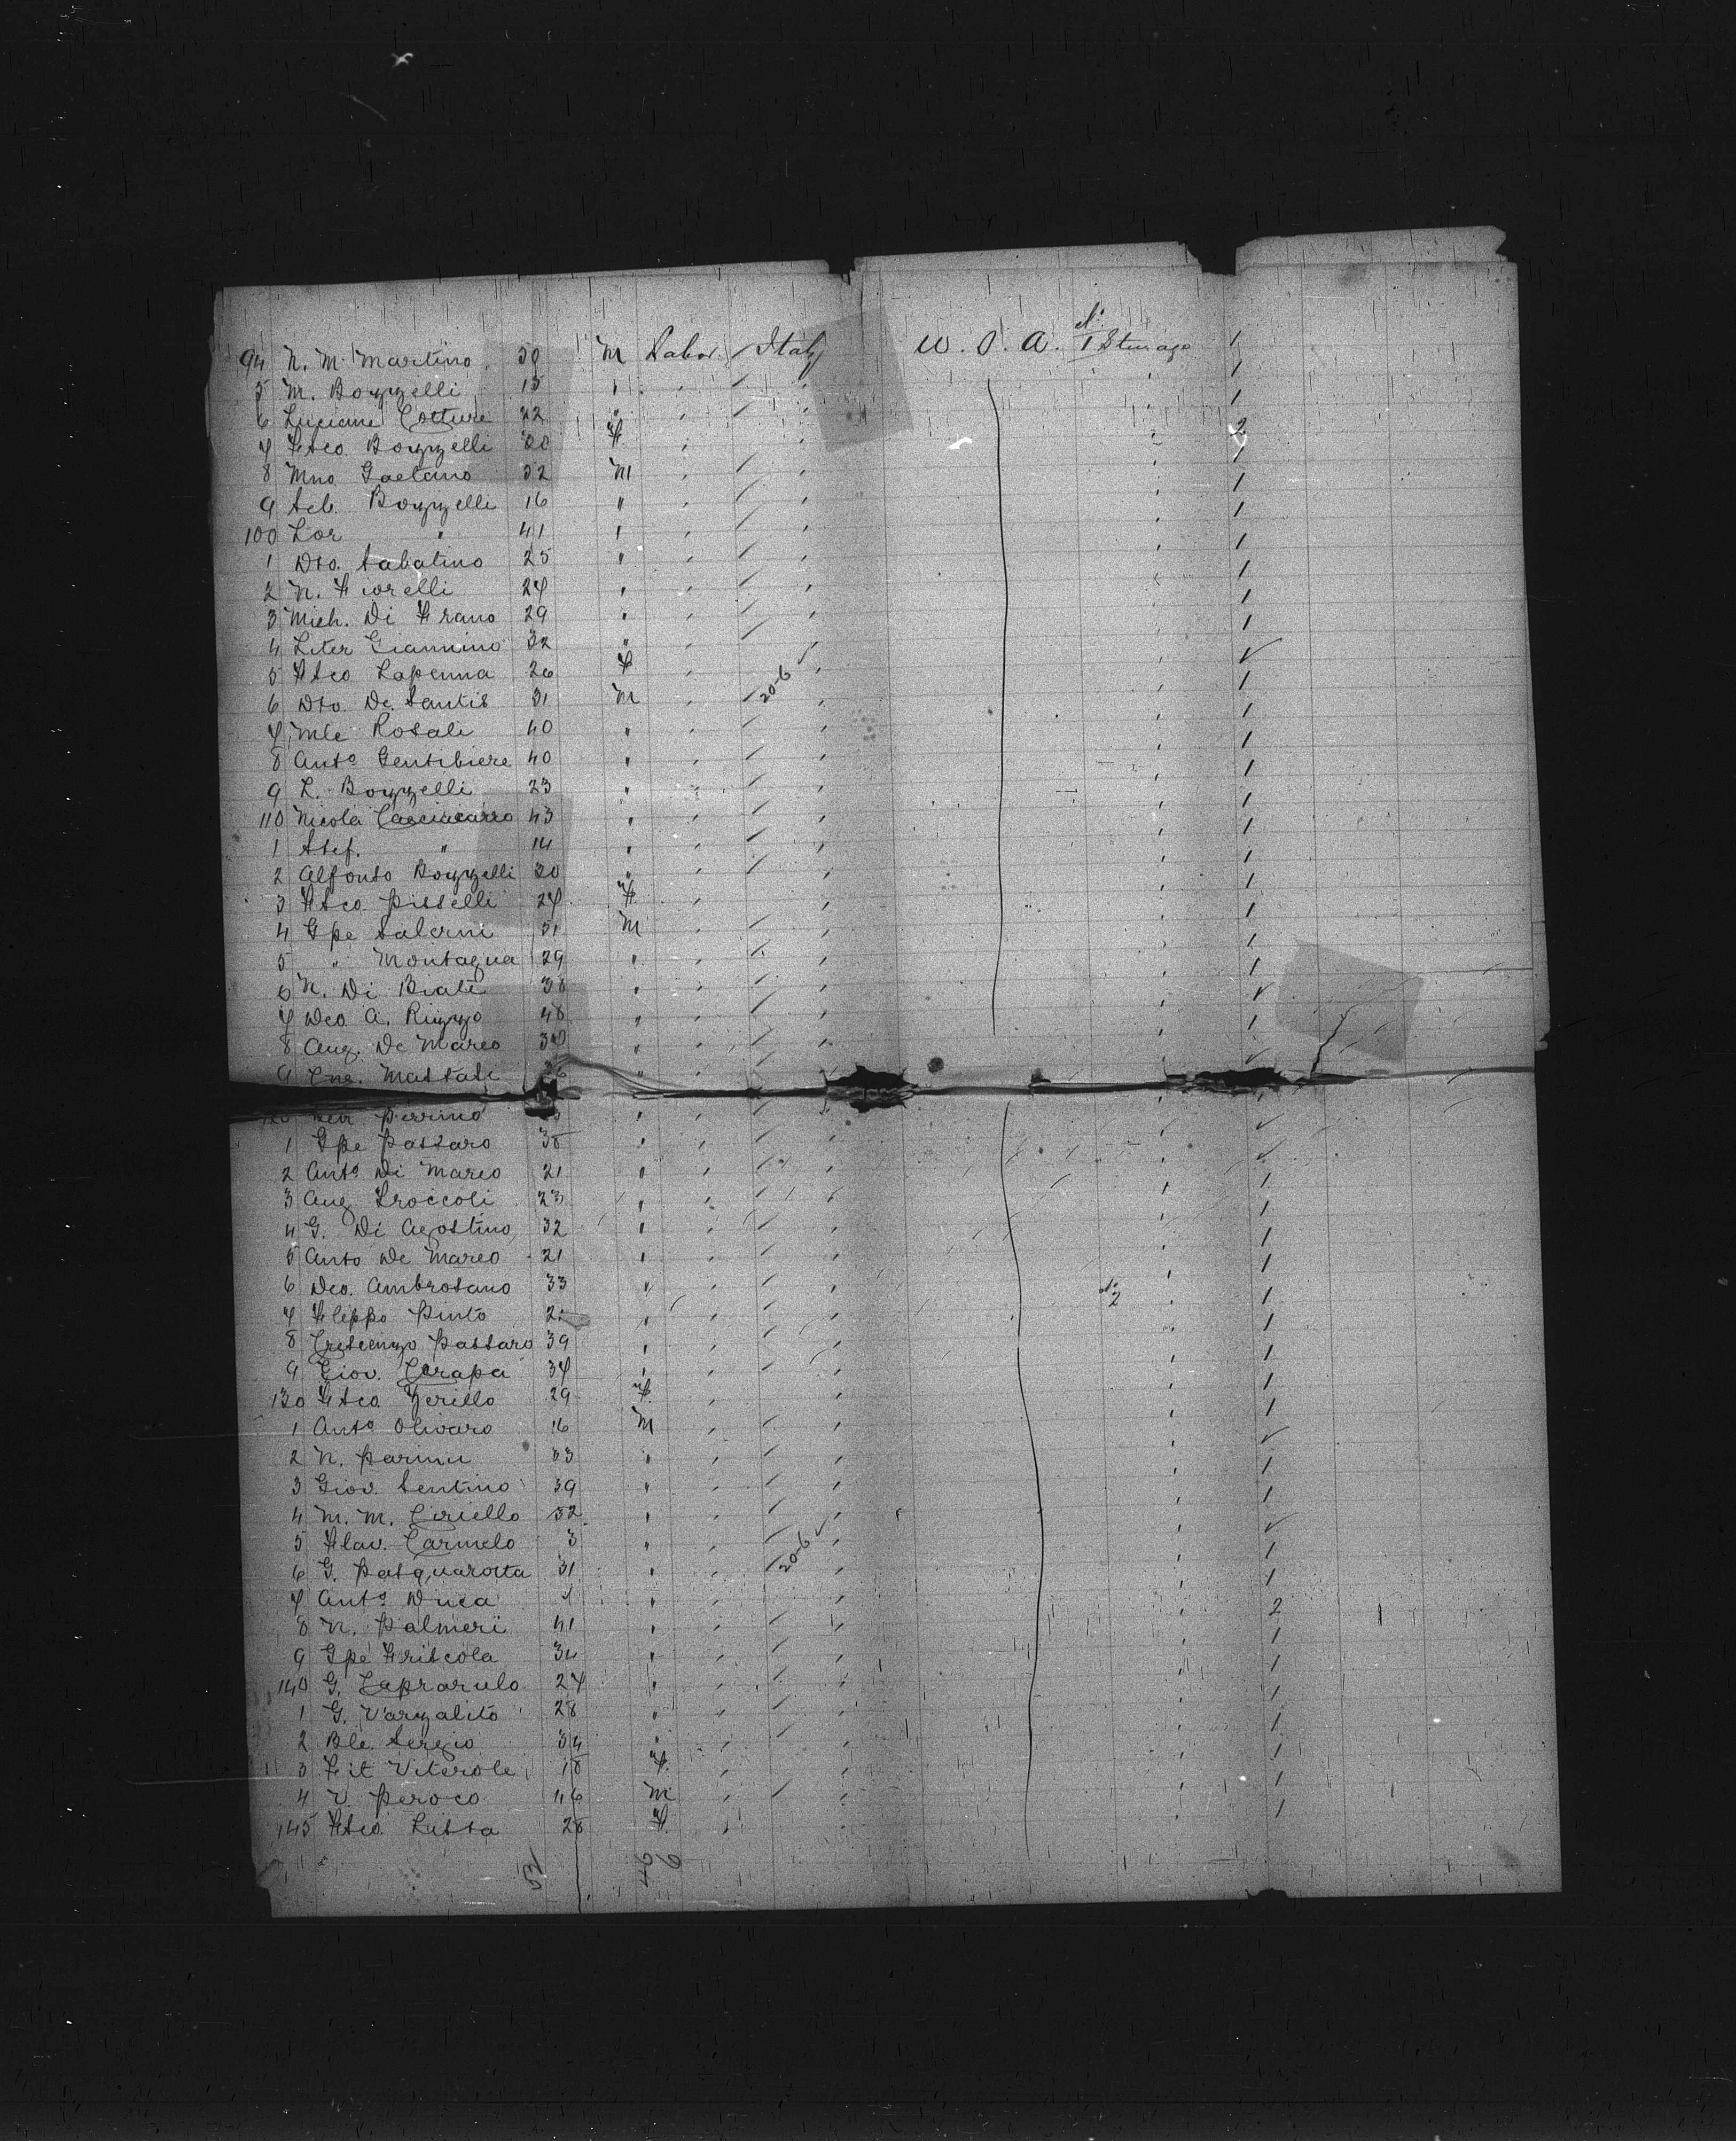 94 N. M. Martino 38 M Labor. / Italy U. S. A. No 1 Sterage 1
5 M. Bozzelli 15 " " / " " 1
6 Luciano Cotture 22 " " / " " 1
7 Fsco Bozzelli 20 F " " " 2
8 Mno Gaetano 32 M " / " " 1
9 Seb. Bozzelli 16 " " / " " 1
100 Lor " 41 " " / " " 1
1 Dto. Sabatino 25 " " / " " 1
2 N. Fiorelli 27 " " / " " 1
3 Mich. Di Frano 29 " " / " " 1
4 Liter Giannino 32 " " / " " 1
5 Fsco Lapenna 26 F " 20-6 ✓ " ✓
6 Dto. De Santis 31 M " / " " 1
7 Mle Rosali 40 " " / " " 1
8 Anto Gentibiere 40 " " / " " 1
9 L. Bozzelli 23 " " / " " 1
110 Nicola Casciacarro 43 " " / " " 1
1 Stef. " 14 " " / " " 1
2 Alfonso Bozzelli 30 " " / " " 1
3 Fsco Pisselli 27 F " " " 1
4 Gpe Salerni 31 M " / " " 1
5 " Montagna 29 " " / " " 1
6 N. Di Biate 38 " " / " " ✓
7 Dco A. Rizzo 48 " " / " " 1
8 Aug. De Marco 37 " " / " " ✓
9 Mastati " " / "
120 Perrino " " / " " ✓
1 Gpe Passaro 38 " " / " " ✓
2 Anto Di Marco 21 " " / " " 1
3 Aug Troccoli 23 " " / " " 1
4 G. Di Agostino 32 " " / " " 1
5 Anto De Marco 21 " " / " " 1
6 Dco. Ambrosano 33 " " / " No 2 " 1
7 Flippo Pinto " " / " " 1
8 Crescenzo Passaro 39 " " / " " 1
9 Giov. Carapa 37 " " / " " 1
130 Fsco Zerillo 29 F " " " 1
1 Anto Olivaro 16 M " / " " ✓
2 N. Parini 33 " " / " " 1
3 Giov. Sentino 39 " " / " " 1
4 M. M. Ciriello 52 " " / " " ✓
5 Flav. Carmelo 3 " " / 20-6 ✓ " " 1
6 G. Pasquarotta 31 " " / " " 1
7 Anto Duca " " / " " 2
8 N. Palmeri 41 " " / " " 1
9 Gpe Friscola 34 " " / " " 1
140 G. Zaprarulo 27 " " / " " 1
1 G. Varzalito 28 " " / " " 1
2 Ble Sergio 34 " " / " " 1
3 Fit Viterole 18 F " " " 1
4 V. Peroco 46 M " / " " 1
145 Fsco Lissa 28 F "